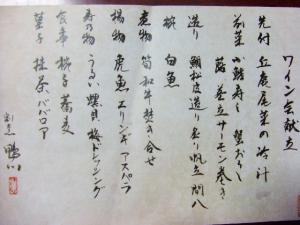 ワイン会献立
先付 丘鹿尾菜の冷汁
前菜 小鯵寿し 蟹おろし
蕗 巻立サーモン巻き
造り 鯛松皮造り 炙り帆立 間八
椀 白魚
煮物 筍 和牛 焚き合せ
揚物 虎魚 エリンギ アスパラ
寿の物 うるい 螺貝 梅ドレッシング
食事 柚子蕎麦
菓子 抹茶ババロア
割烹 鴨川